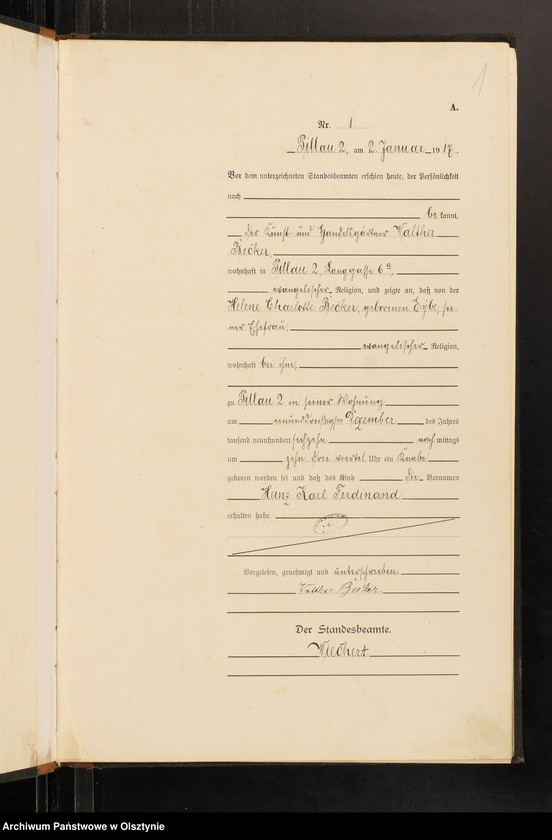 1
A.
Nr. 1
Pillau 2, am 2. Januar 1917.
Vor dem unterzeichneten Standesbeamten erschien heute, der Persönlichkeit
nach
be kannt,
der Kunst- und Handelsgärtner Walther
Becker,
wohnhaft in Pillau 2, Langgasse 6a,
evangelischer Religion, und zeigte an, daß von der
Helene Charlotte Becker, geborenen Eybe, sei-
ner Ehefrau,
evangelischer Religion,
wohnhaft bei ihm,
zu Pillau 2 in seiner Wohnung
am einunddreißigsten Dezember des Jahres
tausend neunhundert sechzehn nach mittags
um zehn drei viertel Uhr ein Knabe
geboren worden sei und daß das Kind die Vornamen
Karl Ferdinand
erhalten habe.
Vorgelesen, genehmigt und unterschrieben
Walther Becker
Der Standesbeamte.
Wiechert
Archiwum Państwowe w Olsztynie